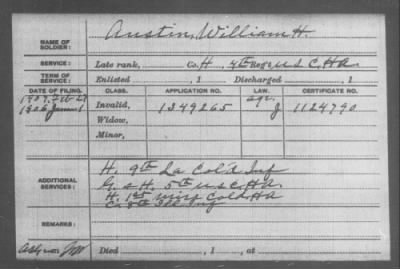 NAME OF SOLDIER: Austin, William H.
SERVICE: Late rank, Co. H, 4th Reg't U.S.C.H.A.
TERM OF SERVICE: Enlisted , 1 Discharged , 1
DATE OF FILING. CLASS. APPLICATION NO. LAW. CERTIFICATE NO.
1907, Feb 27
1906 June 1 Invalid, 1349265 age J 1124790
Widow,
Minor,
ADDITIONAL SERVICES: H. 9th La Col'd Inf
G. & H. 5th U.S.C.H.A.
H. 1st Miss Cold HA
C. 8th Ill Inf
REMARKS:
Died , 1 , at